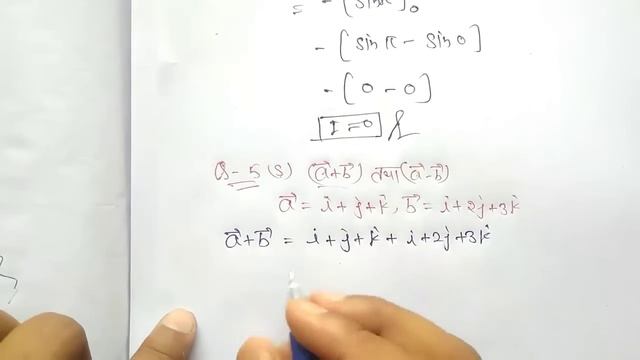 = - [sinx]₀
- [sin π - sin 0]
- [0 - 0]
I = 0
Q-5 (S) (a⃗+b⃗) तथा (a⃗-b⃗)
a⃗ = i + j + k, b⃗ = i + 2j + 3k
a⃗+b⃗ = i + j + k + i + 2j + 3k